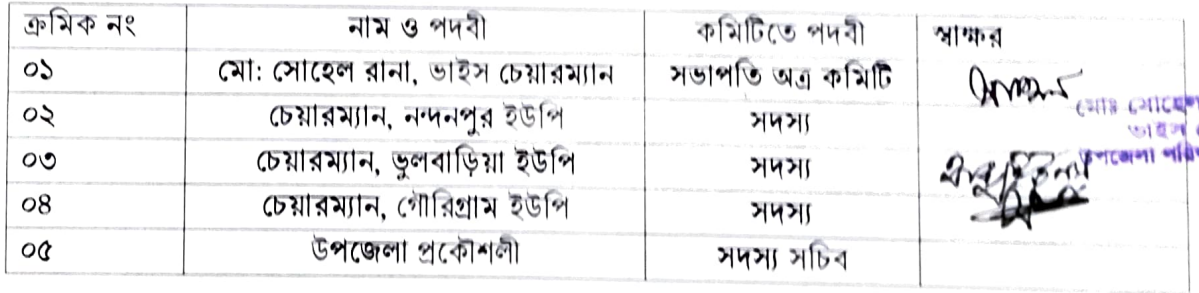 ক্রমিক নং নাম ও পদবী কমিটিতে পদবী স্বাক্ষর
০১ মো: সোহেল রানা, ভাইস চেয়ারম্যান সভাপতি অত্র কমিটি
০২ চেয়ারম্যান, নন্দনপুর ইউপি সদস্য
০৩ চেয়ারম্যান, ভুলবাড়িয়া ইউপি সদস্য
০৪ চেয়ারম্যান, গৌরিগ্রাম ইউপি সদস্য
০৫ উপজেলা প্রকৌশলী সদস্য সচিব